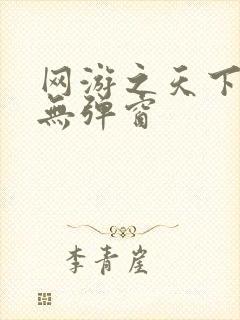 网游之天下
無弹窗
李青崖